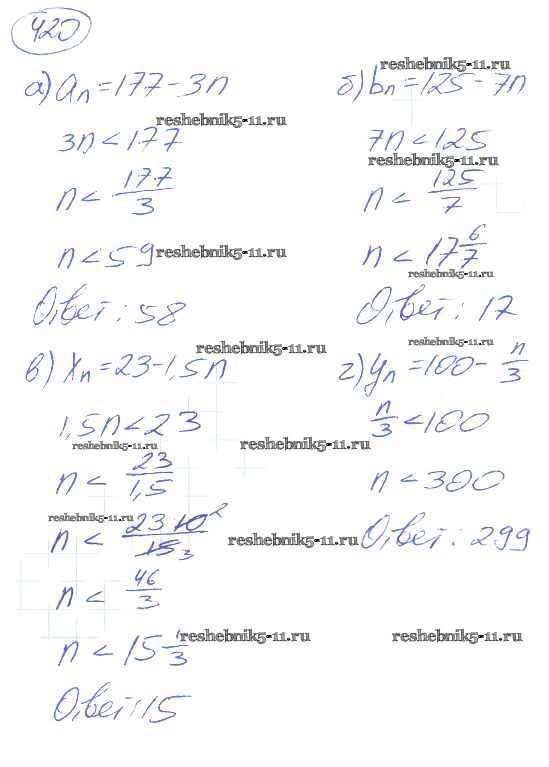 420
а) aₙ = 177 - 3n
reshebnik5-11.ru
3n < 177
n < 177/3
n < 59
reshebnik5-11.ru
Ответ: 58
reshebnik5-11.ru
б) bₙ = 125 - 7n
7n < 125
reshebnik5-11.ru
n < 125/7
n < 17 6/7
reshebnik5-11.ru
Ответ: 17
reshebnik5-11.ru
в) xₙ = 23 - 1,5n
1,5n < 23
reshebnik5-11.ru
n < 23/1,5
reshebnik5-11.ru
n < 23 10 2/15 3
n < 46/3
n < 15 1/3
reshebnik5-11.ru
Ответ: 15
reshebnik5-11.ru
г) yₙ = 100 - n/3
n/3 < 100
reshebnik5-11.ru
n < 300
reshebnik5-11.ru
Ответ: 299
reshebnik5-11.ru